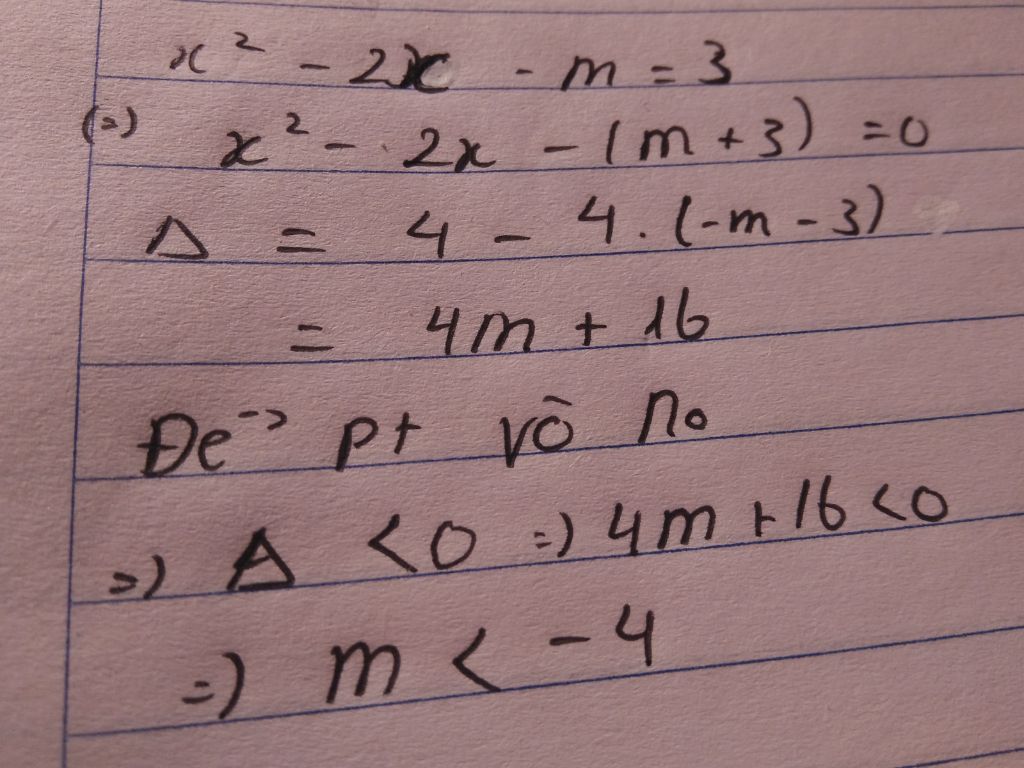 x² - 2x - m = 3
(=) x² - 2x - (m + 3) = 0
Δ = 4 - 4. (-m - 3)
= 4m + 16
Đe -> pt vô no
=) Δ < 0 =) 4m + 16 < 0
=) m < -4